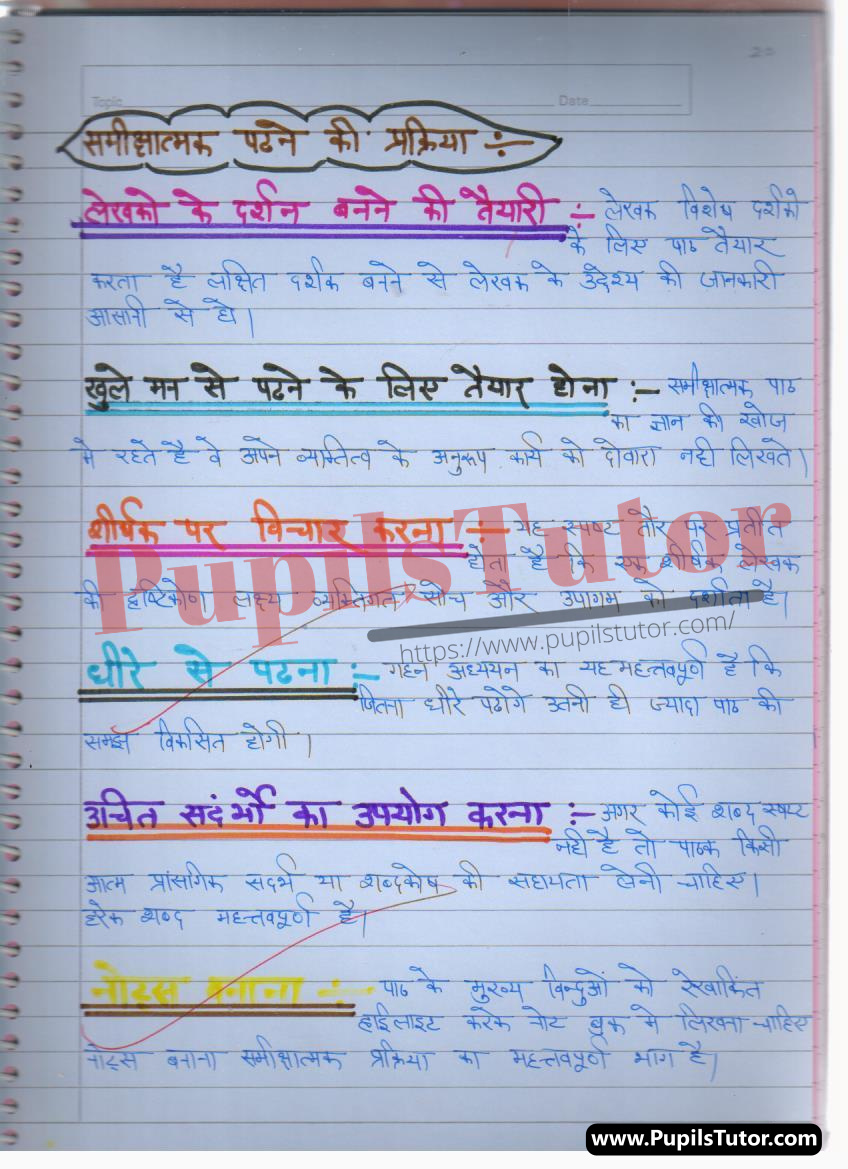 20
Topic Date
समीक्षात्मक पढने की प्रक्रिया :-
लेखको के दर्शन बनने की तैयारी :- लेखक विशेष दर्शको
के लिए पाठ तैयार
करता है लक्षित दर्शक बनने से लेखक के उद्देश्य की जानकारी
आसानी से हो।
खुले मन से पढने के लिए तैयार होना :- समीक्षात्मक पाठ
का ज्ञान की खोज
मे रहते है वे अपने व्यक्तित्व के अनुरूप कार्य को दोवारा नही लिखते।
शीर्षक पर विचार करना :- यह स्पष्ट तौर पर प्रतीत
होता है कि एक शीर्षक लेखक
की दृष्टिकोण लक्ष्य व्यक्तिगत सोच और उपागम को दर्शाता है।
PupilsTutor
https://www.pupilstutor.com/
धीरे से पढना :- गहन अध्ययन का यह महत्तवपूर्ण है कि
जितना धीरे पढोगे उतनी ही ज्यादा पाठ की
समझ विकसित होगी।
उचित सदंर्भो का उपयोग करना :- अगर कोई शब्द स्पष्ट
नही है तो पाठक किसी
आत्म प्रांसगिक सदर्भ या शब्दकोष की सहायता लेनी चाहिए।
हरेक शब्द महत्तवपूर्ण है।
नोट्स बनाना :- पाठ के मुख्य विन्दुओं को रेखाकिंत
हाईलाइट करके नोट बुक मे लिखना चाहिए
नोट्स बनाना समीक्षात्मक प्रक्रिया का महत्तवपूर्ण भाग है।
www.PupilsTutor.com